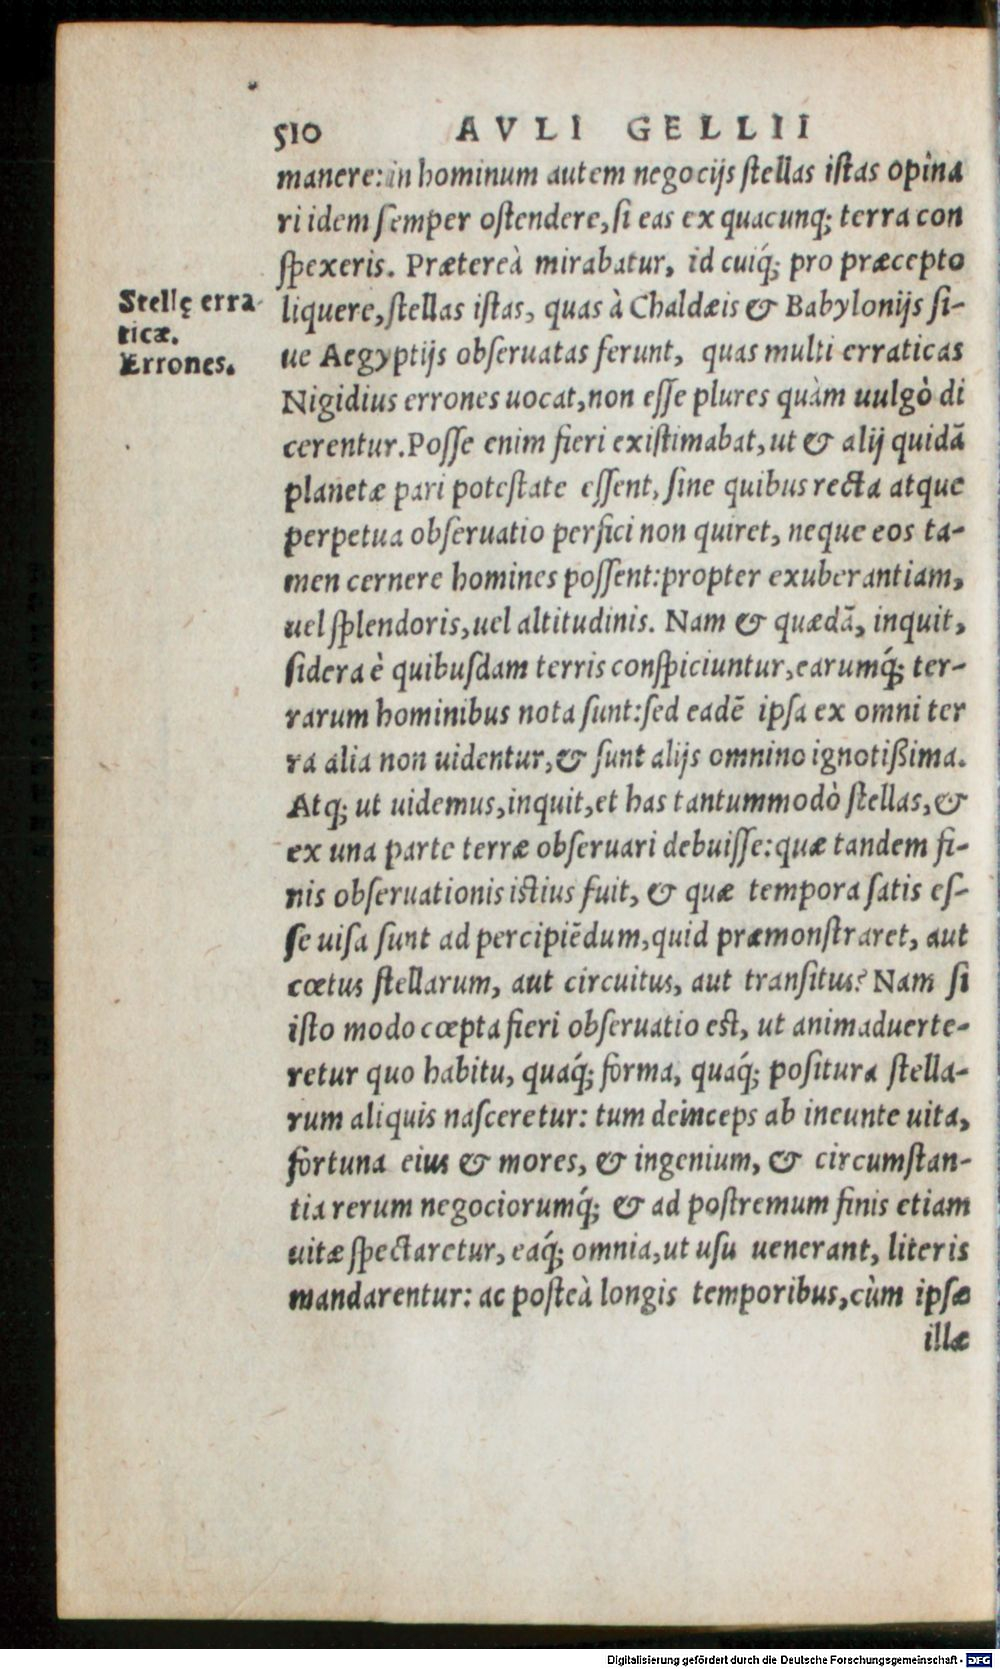 510 AVLI GELLII
manere:in hominum autem negocijs stellas istas opina
ri idem semper ostendere,si eas ex quacunq; terra con
spexeris. Prætereà mirabatur, id cuiq́; pro præcepto
liquere,stellas istas, quas à Chaldæis & Babylonijs si-
ue Aegyptijs obseruatas ferunt, quas multi erraticas
Nigidius errones uocat,non esse plures quàm uulgò di
cerentur.Posse enim fieri existimabat,ut & alij quidā
planetæ pari potestate essent, sine quibus recta atque
perpetua obseruatio perfici non quiret, neque eos ta-
men cernere homines possent:propter exuberantiam,
uel splendoris,uel altitudinis. Nam & quædā, inquit,
sidera è quibusdam terris conspiciuntur,earumq́; ter-
rarum hominibus nota sunt:sed eadē ipsa ex omni ter
ra alia non uidentur,& sunt alijs omnino ignotißima.
Atq; ut uidemus,inquit,et has tantummodò stellas,&
ex una parte terræ obseruari debuisse:quæ tandem fi-
nis obseruationis istius fuit, & quæ tempora satis es-
se uisa sunt ad percipiēdum,quid præmonstraret, aut
cœtus stellarum, aut circuitus, aut transitus? Nam si
isto modo cœpta fieri obseruatio est, ut animaduerte-
retur quo habitu, quaq́; forma, quaq́; positura stella-
rum aliquis nasceretur: tum deinceps ab ineunte uita,
fortuna eius & mores, & ingenium, & circumstan-
tia rerum negociorumq́; & ad postremum finis etiam
uitæ spectaretur, eaq́; omnia,ut usu uenerant, literis
mandarentur: ac posteà longis temporibus,cùm ipsæ
illæ
Stellę erra-
ticæ.
Errones.
Digitalisierung gefördert durch die Deutsche Forschungsgemeinschaft - DFG